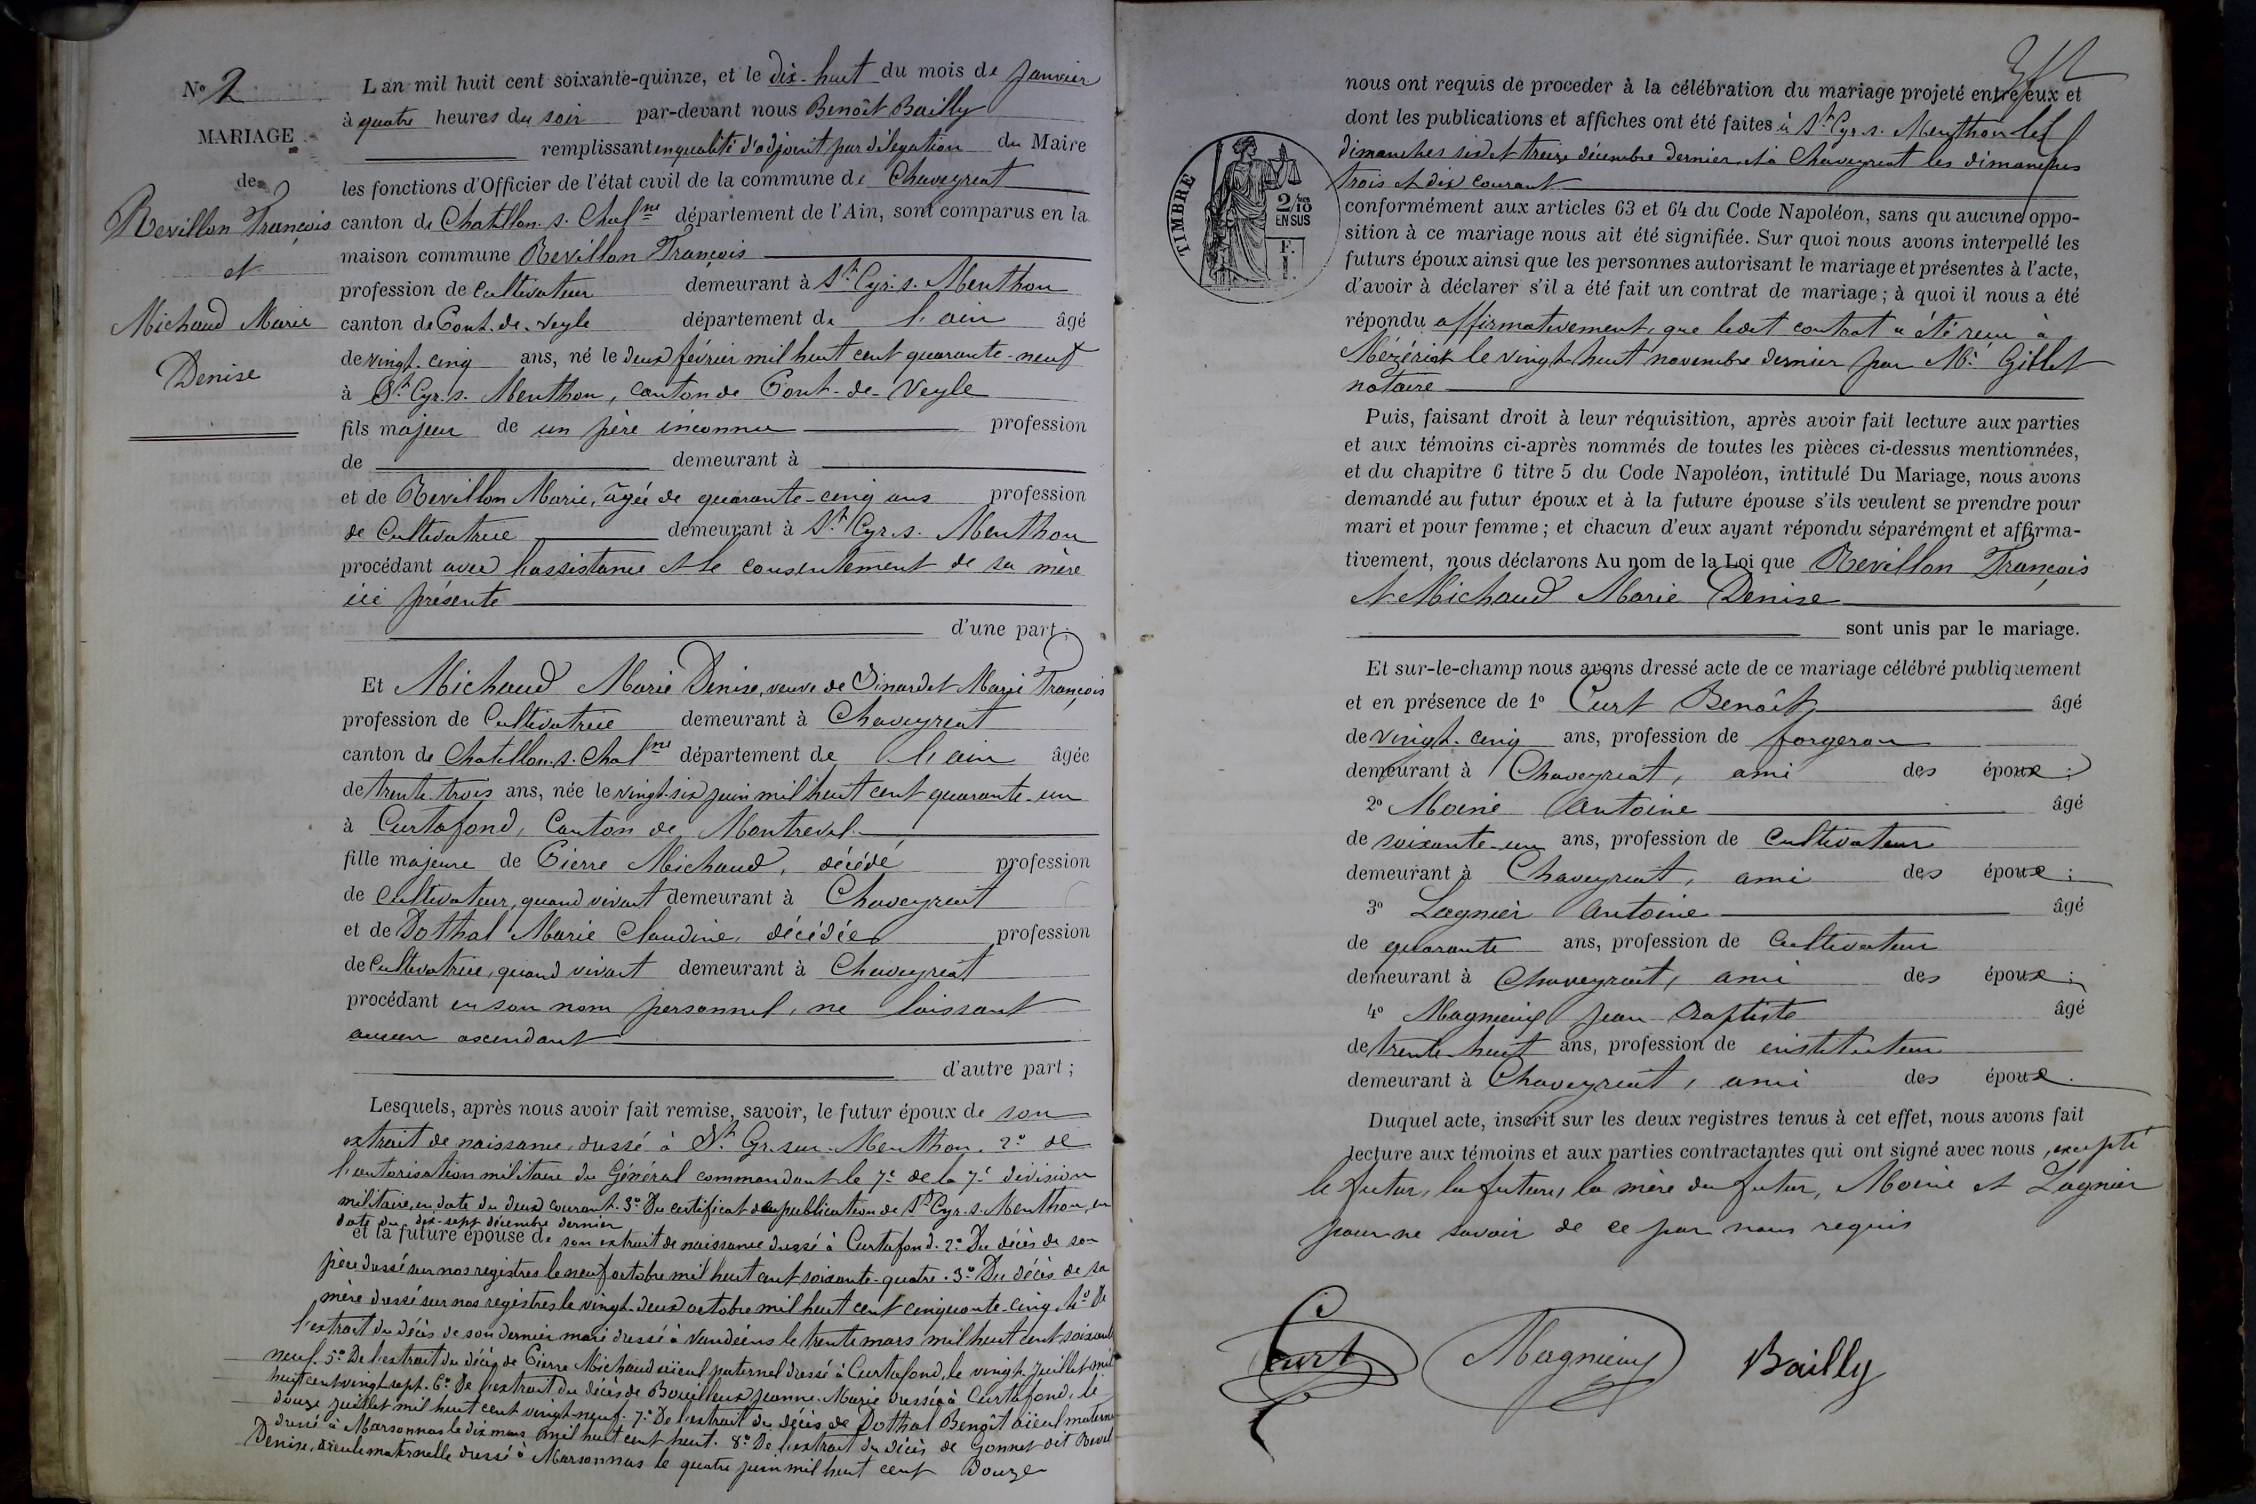 No 2
MARIAGE
de
Revillon François
et
Michaud Marie
Denise
L'an mil huit cent soixante-quinze, et le dix-huit du mois de Janvier
à quatre heures du soir par-devant nous Benoît Bailly
remplissant en qualité d'adjoint par délégation du Maire
les fonctions d'Officier de l'état civil de la commune de Chaveyriat
canton de Chatillon-s-Chalne département de l'Ain, sont comparus en la
maison commune Revillon François
profession de Cultivateur demeurant à St Cyr. s. Menthon
canton de Pont-de-Veyle département de l'ain âgé
de vingt-cinq ans, né le deux février mil huit cent quarante-neuf
à St Cyr. s. Menthon, canton de Pont-de-Veyle
fils majeur de un père inconnu profession
de demeurant à
et de Revillon Marie, âgée de quarante-cinq ans profession
de Cultivatrice demeurant à St Cyr. s. Menthon
procédant avec l'assistance et le consentement de sa mère
ici présente
d'une part;
Et Michaud Marie Denise, veuve de Sinardet Marie François
profession de Cultivatrice demeurant à Chaveyriat
canton de Chatillon. s. Chalne département de l'ain âgée
de trente-trois ans, née le vingt-six juin mil huit cent quarante-un
à Curtafond, Canton de Montrevel
fille majeure de Pierre Michaud, décédé profession
de Cultivateur, quand vivait demeurant à Chaveyriat
et de Dothal Marie Claudine, décédée profession
de Cultivatrice, quand vivait demeurant à Chaveyriat
procédant en son nom personnel, ne laissant
aucun ascendant
d'autre part;
Lesquels, après nous avoir fait remise, savoir, le futur époux de son
extrait de naissance, dressé à St. Cyr-sur-Menthon. 2º de
l'autorisation militaire du Général commandant le 7e de la 7e division
militaire, en date du deux courant. 3º Du certificat de publication de St Cyr. s. Menthon, en
date du dix-sept décembre dernier
et la future épouse de son extrait de naissance dressé à Curtafond. 2º Du décès de son
père dressé sur nos registres le neuf octobre mil huit cent soixante-quatre. 3º Du décès de sa
mère dressé sur nos registres le vingt-deux octobre mil huit cent cinquante-cinq. 4º De
l'extrait du décès de son dernier mari dressé à Vandeins le trente mars mil huit cent soixante
neuf. 5º De l'extrait du décès de Pierre Michaud aïeul paternel dressé à Curtafond, le vingt juillet mil
huit cent vingt sept. 6º De l'extrait du décès de Bouilloux Jeanne-Marie dressé à Curtafond, le
douze juillet mil huit cent vingt-neuf. 7º De l'extrait du décès de Dothal Benoît aïeul maternel
dressé à Marsonnas le dix mars mil huit cent huit. 8º De l'extrait du décès de Gonnet dit Revel
Denise, aïeule maternelle dressé à Marsonnas le quatre juin mil huit cent douze
nous ont requis de proceder à la célébration du mariage projeté entre eux et
dont les publications et affiches ont été faites à St Cyr. s. Menthon les
dimanches six et treize décembre dernier et à Chaveyriat les dimanches
trois et dix courant
TIMBRE
2/10
EN SUS
F. 1.
conformément aux articles 63 et 64 du Code Napoléon, sans qu'aucune oppo-
sition à ce mariage nous ait été signifiée. Sur quoi nous avons interpellé les
futurs époux ainsi que les personnes autorisant le mariage et présentes à l'acte,
d'avoir à déclarer s'il a été fait un contrat de mariage; à quoi il nous a été
répondu affirmativement, que ledit contrat a été reçu à
Mézériat le vingt-huit novembre dernier par Me Gillet
notaire
Puis, faisant droit à leur réquisition, après avoir fait lecture aux parties
et aux témoins ci-après nommés de toutes les pièces ci-dessus mentionnées,
et du chapitre 6 titre 5 du Code Napoléon, intitulé Du Mariage, nous avons
demandé au futur époux et à la future épouse s'ils veulent se prendre pour
mari et pour femme; et chacun d'eux ayant répondu séparément et affirma-
tivement, nous déclarons Au nom de la Loi que Revillon François
et Michaud Marie Denise
sont unis par le mariage.
Et sur-le-champ nous avons dressé acte de ce mariage célébré publiquement
et en présence de 1º Curt Benoît âgé
de vingt-cinq ans, profession de forgeron
demeurant à Chaveyriat, ami des époux;
2º Moine Antoine âgé
de soixante-un ans, profession de Cultivateur
demeurant à Chaveyriat, ami des époux;
3º Lagnier Antoine âgé
de quarante ans, profession de Cultivateur
demeurant à Chaveyriat, ami des époux;
4º Magnieny Jean Baptiste âgé
de trente-huit ans, profession de instituteur
demeurant à Chaveyriat, ami des époux.
Duquel acte, inscrit sur les deux registres tenus à cet effet, nous avons fait
lecture aux témoins et aux parties contractantes qui ont signé avec nous, excepté
le futur, la future, la mère du futur, Moine et Lagnier
pour ne savoir de ce par nous requis
Curt Magnieny Bailly